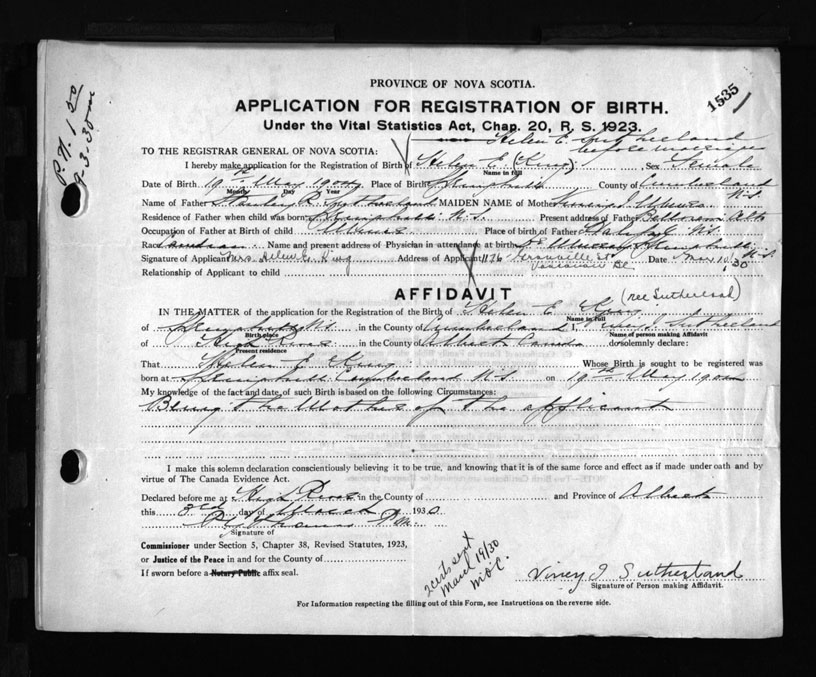 PROVINCE OF NOVA SCOTIA.
1535
APPLICATION FOR REGISTRATION OF BIRTH.
Under the Vital Statistics Act, Chap. 20, R. S. 1923.
Helen E. Sutherland
before marriage
TO THE REGISTRAR GENERAL OF NOVA SCOTIA:
I hereby make application for the Registration of Birth of Helen E. (King) Sex Female
Name in full
Date of Birth 19th May 1900 Place of Birth County of Cumberland N.S
Month Day Year
Name of Father Stanley R. Sutherland MAIDEN NAME of Mother
Residence of Father when child was born N.S. Present address of Father Alta
Occupation of Father at Birth of child Place of birth of Father N.S.
Race Canadian Name and present address of Physician in attendance at birth Dr Murray N.S
Signature of Applicant Mrs Helen E. King Address of Applicant 1176 Granville St Vancouver BC Date Mar 10, 30
Relationship of Applicant to child
AFFIDAVIT
(nee Sutherland)
IN THE MATTER of the application for the Registration of the Birth of Helen E. King
Name in full
of N.S. in the County of Cumberland I, Viney J. Sutherland
Birth place Name of person making Affidavit
of High River in the County of Alberta Canada do solemnly declare:
Present residence
That Helen E King Whose Birth is sought to be registered was
born at Cumberland N.S on 19th May 1900
My knowledge of the fact and date, of such Birth is based on the following Circumstances:
Being the Mother of the applicant
I make this solemn declaration conscientiously believing it to be true, and knowing that it is of the same force and effect as if made under oath and by
virtue of The Canada Evidence Act.
Declared before me at High River in the County of and Province of Alberta
this 3rd day of March 1930
Thomas P.M.
Signature of
Commissioner under Section 5, Chapter 38, Revised Statutes, 1923,
or Justice of the Peace in and for the County of
If sworn before a Notary Public affix seal.
2 certs sent
March 19/30
Viney J. Sutherland
Signature of Person making Affidavit.
For Information respecting the filling out of this Form, see Instructions on the reverse side.